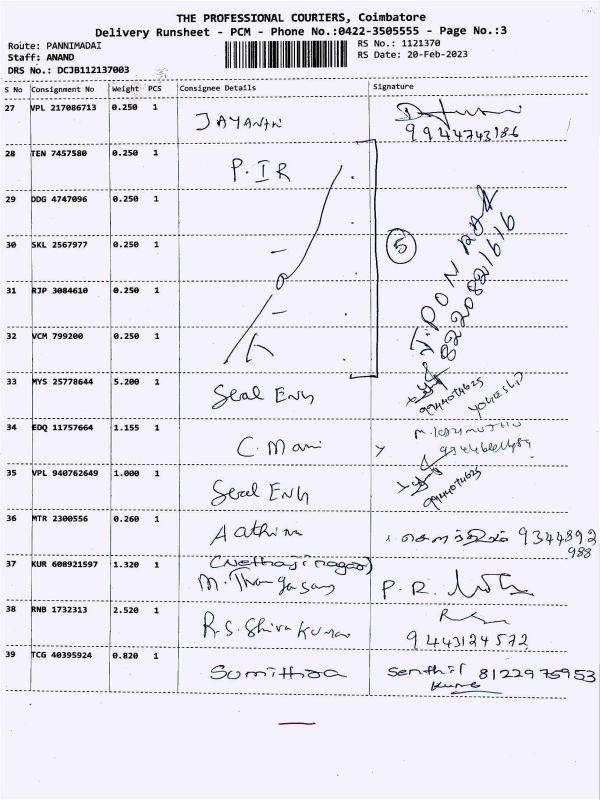 THE PROFESSIONAL COURIERS, Coimbatore
Delivery Runsheet - PCM - Phone No.:0422-3505555 - Page No.:3
Route: PANNIMADAI
RS No.: 1121370
Staff: ANAND
RS Date: 20-Feb-2023
DRS No.: DCJB112137003
S No Consignment No Weight PCS Consignee Details Signature
27 VPL 217086713 0.250 1 JAYANTHI
9944743186
28 TEN 7457580 0.250 1 P.IR
29 DDG 4747096 0.250 1
5
30 SKL 2567977 0.250 1
31 RJP 3084610 0.250 1
8220821616
32 VCM 799200 0.250 1
33 MYS 25778644 5.200 1 Seral Eng
9944074625
34 EDQ 11757664 1.155 1 C. Mani
35 VPL 940762649 1.000 1 Seral Eng
9944074625
36 MTR 2300556 0.260 1 Aathira 9344892
988
37 KUR 608921597 1.320 1 (Nethaji nagar)
M. Thangasamy P. R.
38 RNB 1732313 2.520 1 R.S. Shiva Kumar
9443124572
39 TCG 40395924 0.820 1 Sumithraa Senthil 8122975953
Kumar